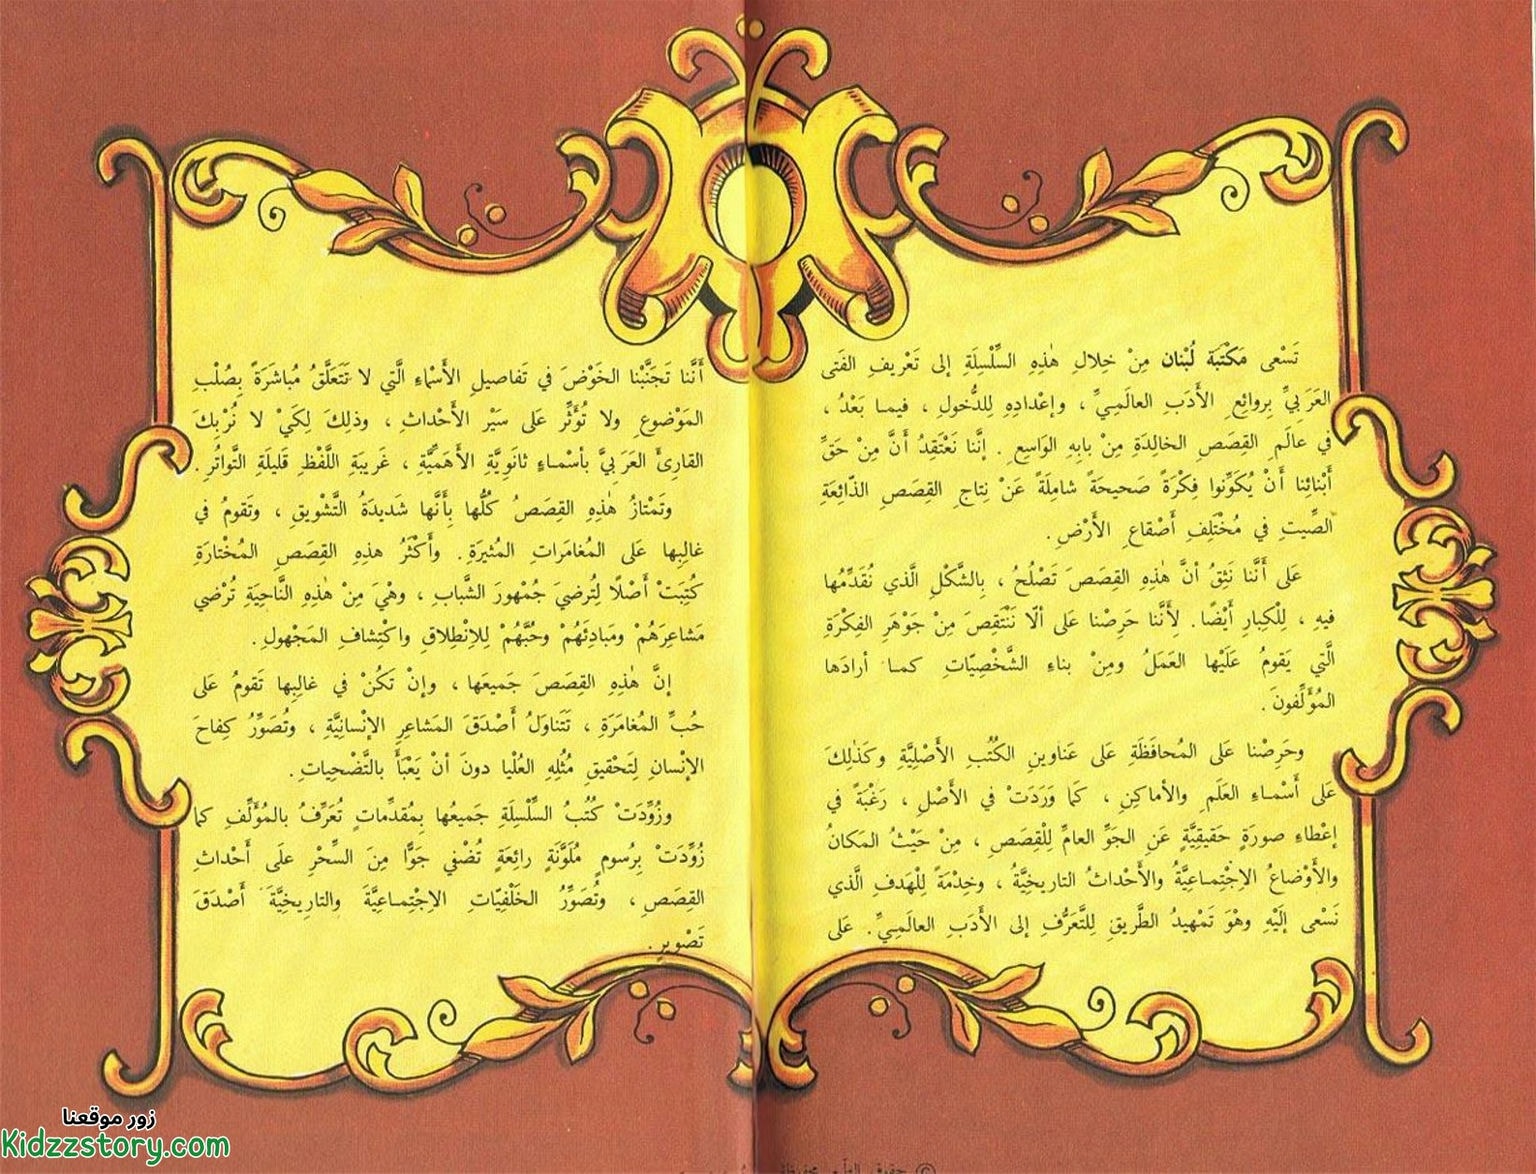 تَسْعى مَكْتَبَة لُبْنان مِنْ خِلالِ هٰذِهِ السِّلْسِلَةِ إلى تَعْريفِ الفَتى
العَرَبِيِّ بِروائِعِ الأَدَبِ العالَمِيِّ ، وإعْدادِهِ لِلدُّخولِ ، فيمـا بَعْدُ ،
في عالَمِ القِصَصِ الخالِدَةِ مِنْ بابِهِ الواسِعِ . إنَّنا نَعْتَقِدُ أَنَّ مِنْ حَقِّ
أَبْنائِنا أَنْ يُكَوِّنوا فِكْرَةً صَحيحَةً شامِلَةً عَنْ نِتاجِ القِصَصِ الذّائِعَةِ
الصِّيتِ في مُخْتَلِفِ أَصْقاعِ الأَرْضِ .
عَلى أَنَّنا نَثِقُ أنَّ هٰذِهِ القِصَصَ تَصْلُحُ ، بِالشَّكْلِ الَّذي نُقَدِّمُها
فيهِ ، لِلْكِبارِ أَيْضًا . لِأَنَّنا حَرِصْنا عَلى أَلّا نَنْتَقِصَ مِنْ جَوْهَرِ الفِكْرَةِ
الَّتي يَقومُ عَلَيْها العَمَلُ ومِنْ بناءِ الشَّخْصِيّاتِ كمـا أرادَها
المُؤَلِّفونَ .
وحَرِصْنا عَلى المُحافَظَةِ عَلى عَناوينِ الكُتُبِ الأَصْلِيَّةِ وكَذٰلِكَ
عَلى أَسْماءِ العَلَمِ والأماكِنِ ، كَما وَرَدَتْ في الأَصْلِ ، رَغْبَةً في
إعْطاءِ صورَةٍ حَقيقِيَّةٍ عَنِ الجَوِّ العامِّ لِلْقِصَصِ ، مِنْ حَيْثُ المَكانُ
والأَوْضاعُ الاِجْتِماعِيَّةُ والأَحْداثُ التاريخِيَّةُ ، وخِدْمَةً لِلْهَدفِ الَّذي
نَسْعى إلَيْهِ وهْوَ تَمْهيدُ الطَّريقِ لِلتَّعَرُّفِ إلى الأَدَبِ العالَمِيِّ . عَلى
أَنَّنا تَجَنَّبْنا الخَوْضَ في تَفاصيلِ الأَسْماءِ الَّتي لا تَتَعَلَّقُ مُباشَرَةً بِصُلْبِ
المَوْضوعِ ولا تُؤَثِّرُ عَلى سَيْرِ الأَحْداثِ ، وذلِكَ لِكَيْ لا نُرْبِكَ
القارِئَ العَرَبِيَّ بأسْماءٍ ثانَوِيَّةِ الأَهَمِّيَّةِ ، غَريبَةِ اللَّفْظِ قَليلَةِ التَّواتُرِ .
وتَمْتازُ هٰذِهِ القِصَصُ كُلُّها بِأَنَّها شَديدَةُ التَّشْويقِ ، وتَقومُ في
غالِبِها عَلى المُغامَراتِ المُثيرَةِ . وأَكْثَرُ هذِهِ القِصَصِ المُخْتارَةِ
كُتِبَتْ أَصْلًا لِتُرضي جُمْهورَ الشَّبابِ ، وهْيَ مِنْ هٰذِهِ النَّاحِيَةِ تُرْضي
مَشاعِرَهُمْ ومَبادِئَهُمْ وحُبَّهُمْ لِلاِنْطِلاقِ واكْتِشافِ المَجْهولِ .
إنَّ هٰذِهِ القِصَصَ جَميعَها ، وإنْ تَكُنْ في غالِبِها تَقومُ عَلى
حُبِّ المُغامَرَةِ ، تَتَناوَلُ أَصْدَقَ المَشاعِرِ الإنْسانِيَّةِ ، وتُصَوِّرُ كِفاحَ
الإنْسانِ لِتَحْقيقِ مُثُلِهِ العُلْيا دونَ أنْ يَعْبَأَ بالتَّضْحِياتِ .
وزُوِّدَتْ كُتُبُ السِّلْسِلَةِ جَميعُها بِمُقَدِّماتٍ تُعَرِّفُ بالمُؤَلِّفِ كما
زُوِّدَتْ بِرُسومٍ مُلَوَّنَةٍ رائِعَةٍ تُضْفي جَوًّا مِنَ السِّحْرِ عَلَى أَحْداثِ
القِصَصِ ، وتُصَوِّرُ الخَلْفِيّاتِ الاِجْتِماعِيَّةَ والتاريخِيَّةَ أَصْدَقَ
تَصْويرٍ .
زور موقعنا
Kidzzstory.com